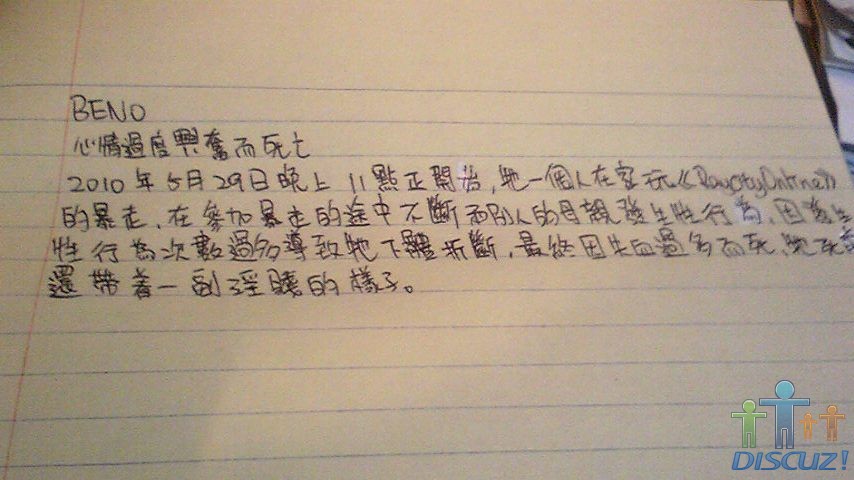 BENO
心情過度興奮而死亡
2010 年 5月 29日晚上 11點正開始,牠一個人在家玩《RaycityOnline》
的暴走,在參加暴走的途中不斷和別人的母親發生性行為,因為生
性行為次數過多導致牠下體折斷,最終因失血過多而死,死
還帶着一副淫賤的樣子。
DISCUZ!